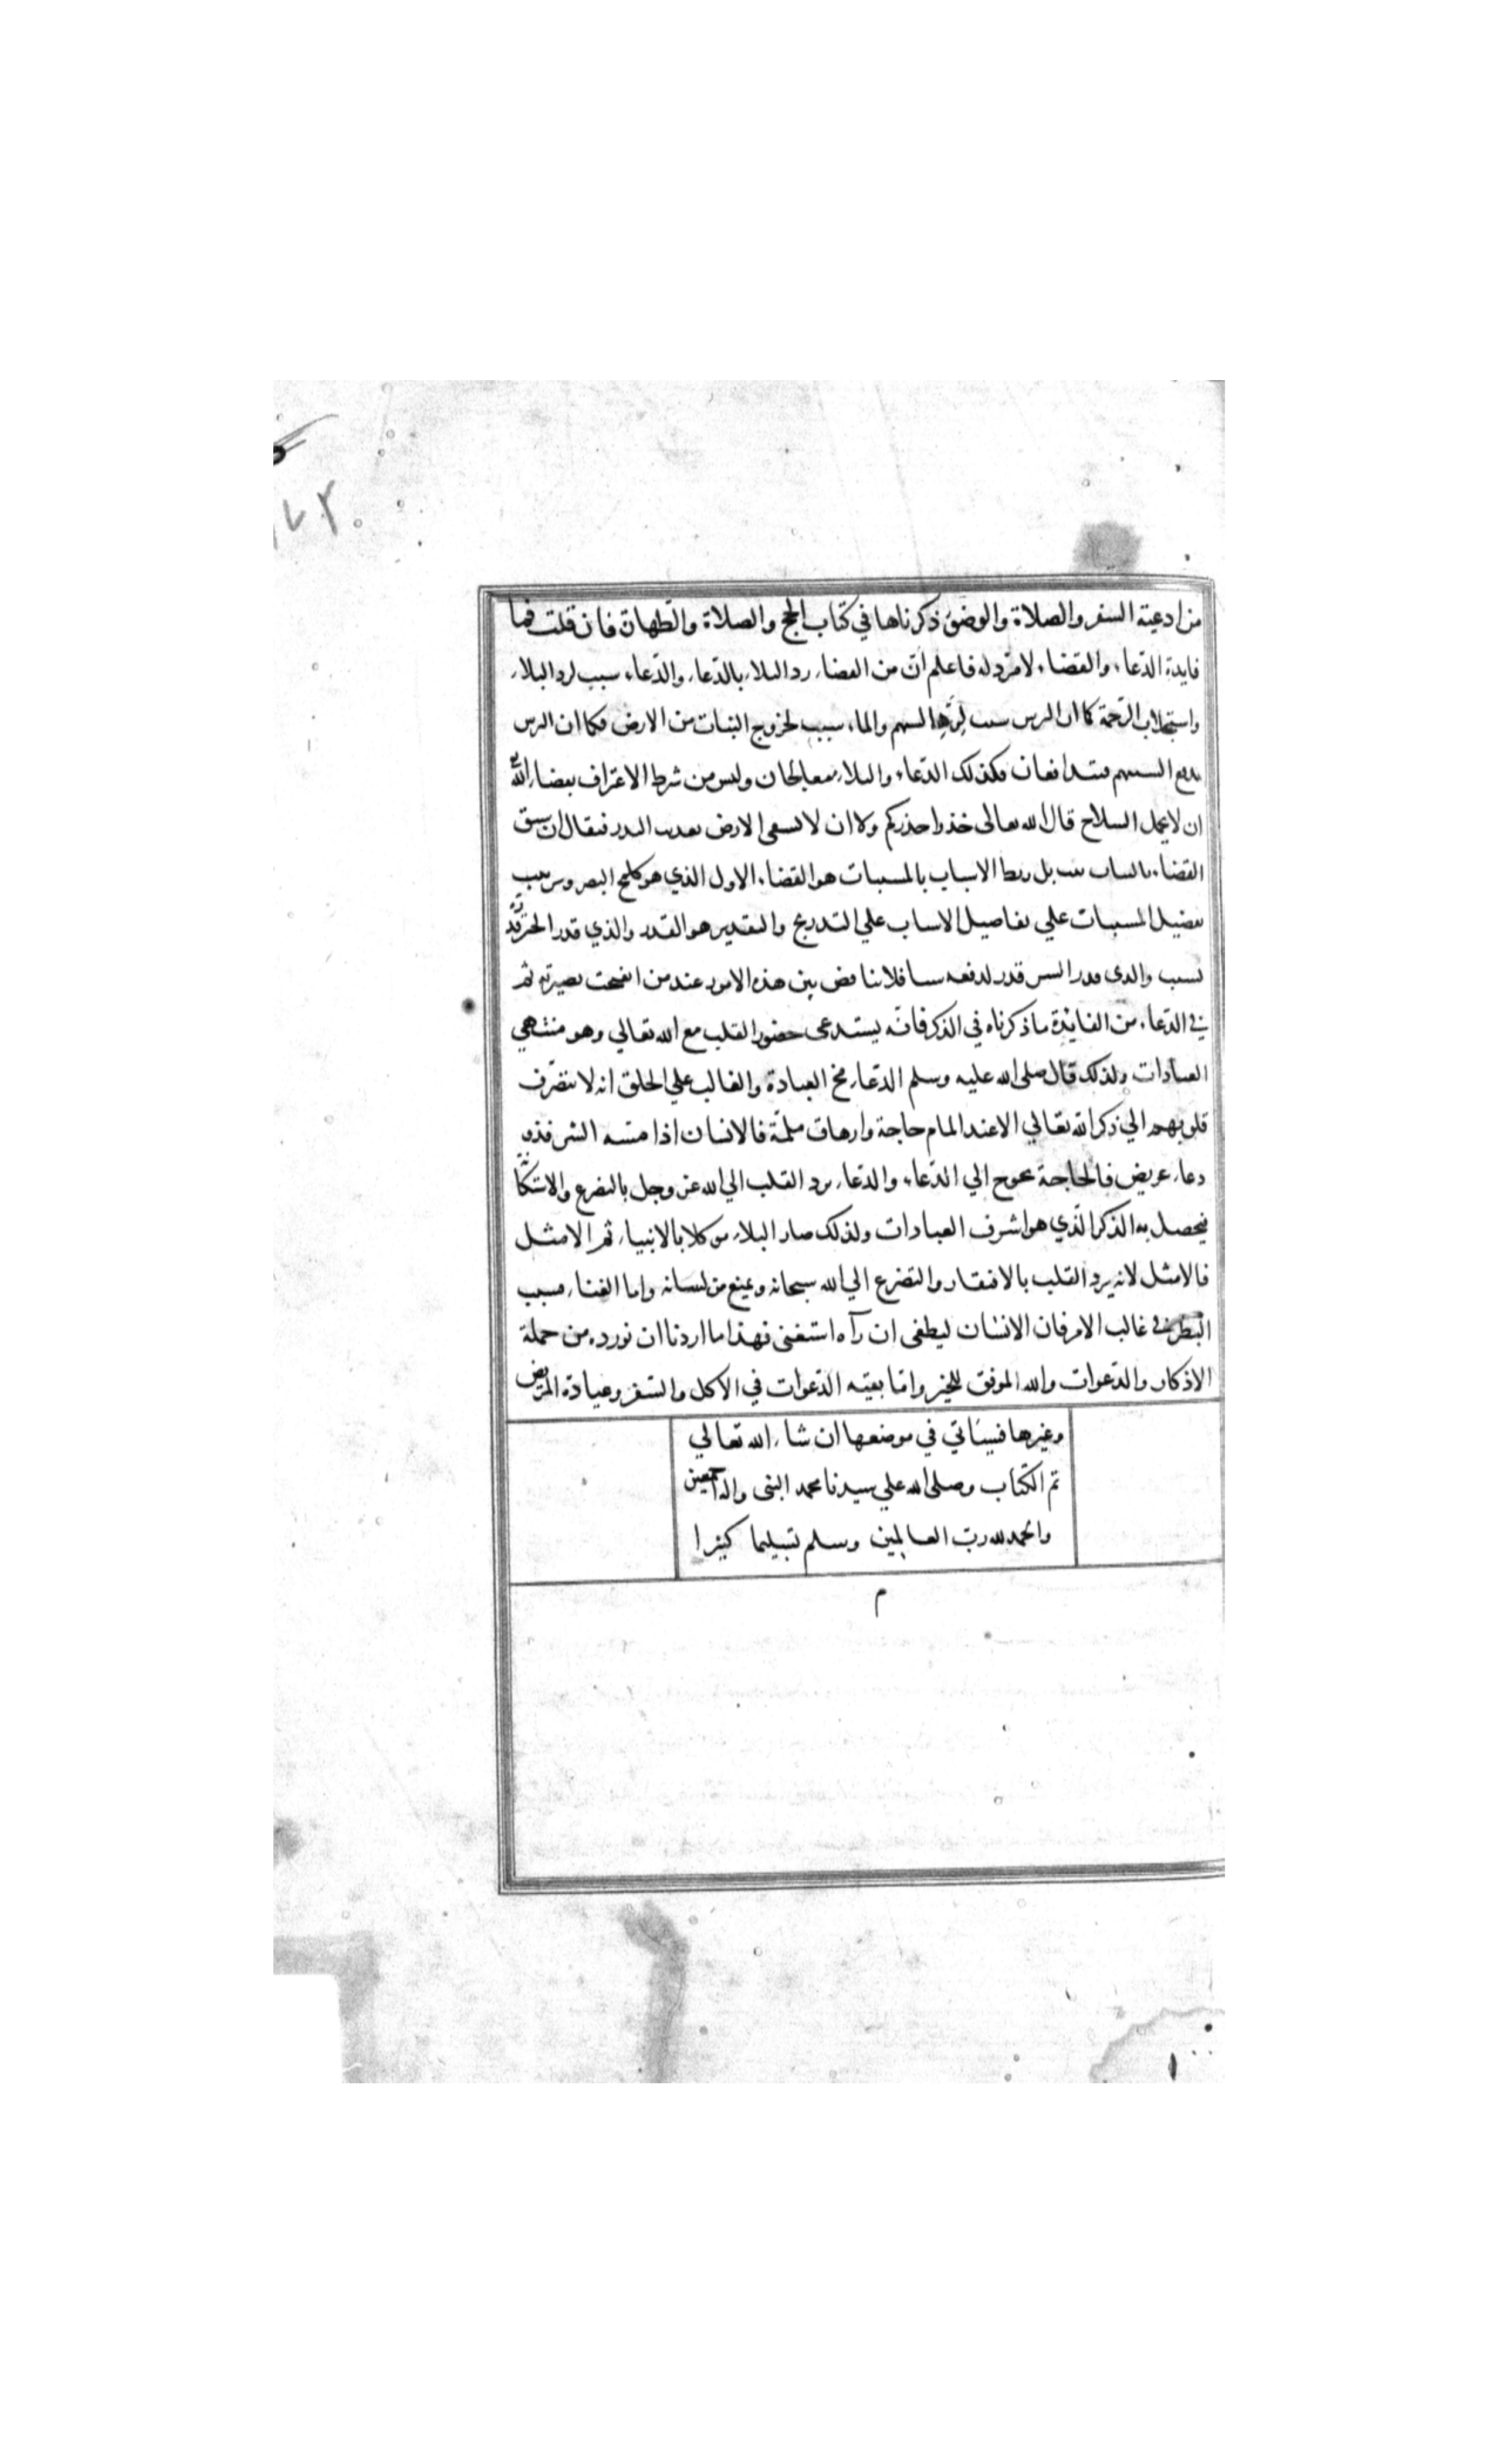 من ادعية السفر والصلاة والوضوء ذكرناها في كتاب الحج والصلاة والطهارة فان قلت فما
فايدة الدعاء والقضاء لا مرد له فاعلم أن من القضاء رد البلاء بالدعاء والدعاء سبب لرد البلاء
واستجلاب الرحمة كما ان الترس سبب لرد السهم والماء سبب لخروج النبات من الارض فكما ان الترس
يدفع السهم فيتدافعان فكذلك الدعاء والبلاء يتعالجان وليس من شرط الاعتراف بقضاء الله
ان لا يحمل السلاح قال الله تعالى خذوا حذركم ولا ان لا يسقى الارض بعد بث البذر فيقال ان سبق
القضاء بالنبات نبت بل ربط الاسباب بالمسببات هو القضاء الاول الذي هو كلمح البصر وترتيب
تفصيل المسببات علي تفاصيل الاسباب علي التدريج والتقدير هو القدر والذي قدر الخير قدره
لسبب والذي قدر الشر قدر لدفعه سببا فلا تناقض بين هذه الامور عند من انفتحت بصيرته ثم
في الدعاء من الفايدة ما ذكرناه في الذكر فانه يستدعى حضور القلب مع الله تعالي وهو منتهي
العبادات ولذلك قال صلى الله عليه وسلم الدعاء مخ العبادة والغالب علي الخلق انه لا تنصرف
قلوبهم الي ذكر الله تعالي الا عند المام حاجة وارهاق ملمة فالانسان اذا مسه الشر فذو
دعاء عريض فالحاجة تحوج الي الدعاء والدعاء يرد القلب الي الله عز وجل بالتضرع والاستكا
فيحصل به الذكر الذي هو اشرف العبادات ولذلك صار البلاء موكلا بالانبياء ثم الامثل
فالامثل لانه يرد القلب بالافتقار والتضرع الي الله سبحانه ويمنع من لسانه واما الغناء فسبب
البطر في غالب الامر فان الانسان ليطغى ان رآه استغنى فهذا ما اردنا ان نورده من جملة
الاذكار والدعوات والله الموفق للخير واما بقية الدعوات في الاكل والسفر وعيادة المريض
وغيرها فسيأتي في موضعها ان شاء الله تعالي
تم الكتاب وصلى الله علي سيدنا محمد النبى واله اجمعين
والحمد لله رب العالمين وسلم تسليما كثيرا
م